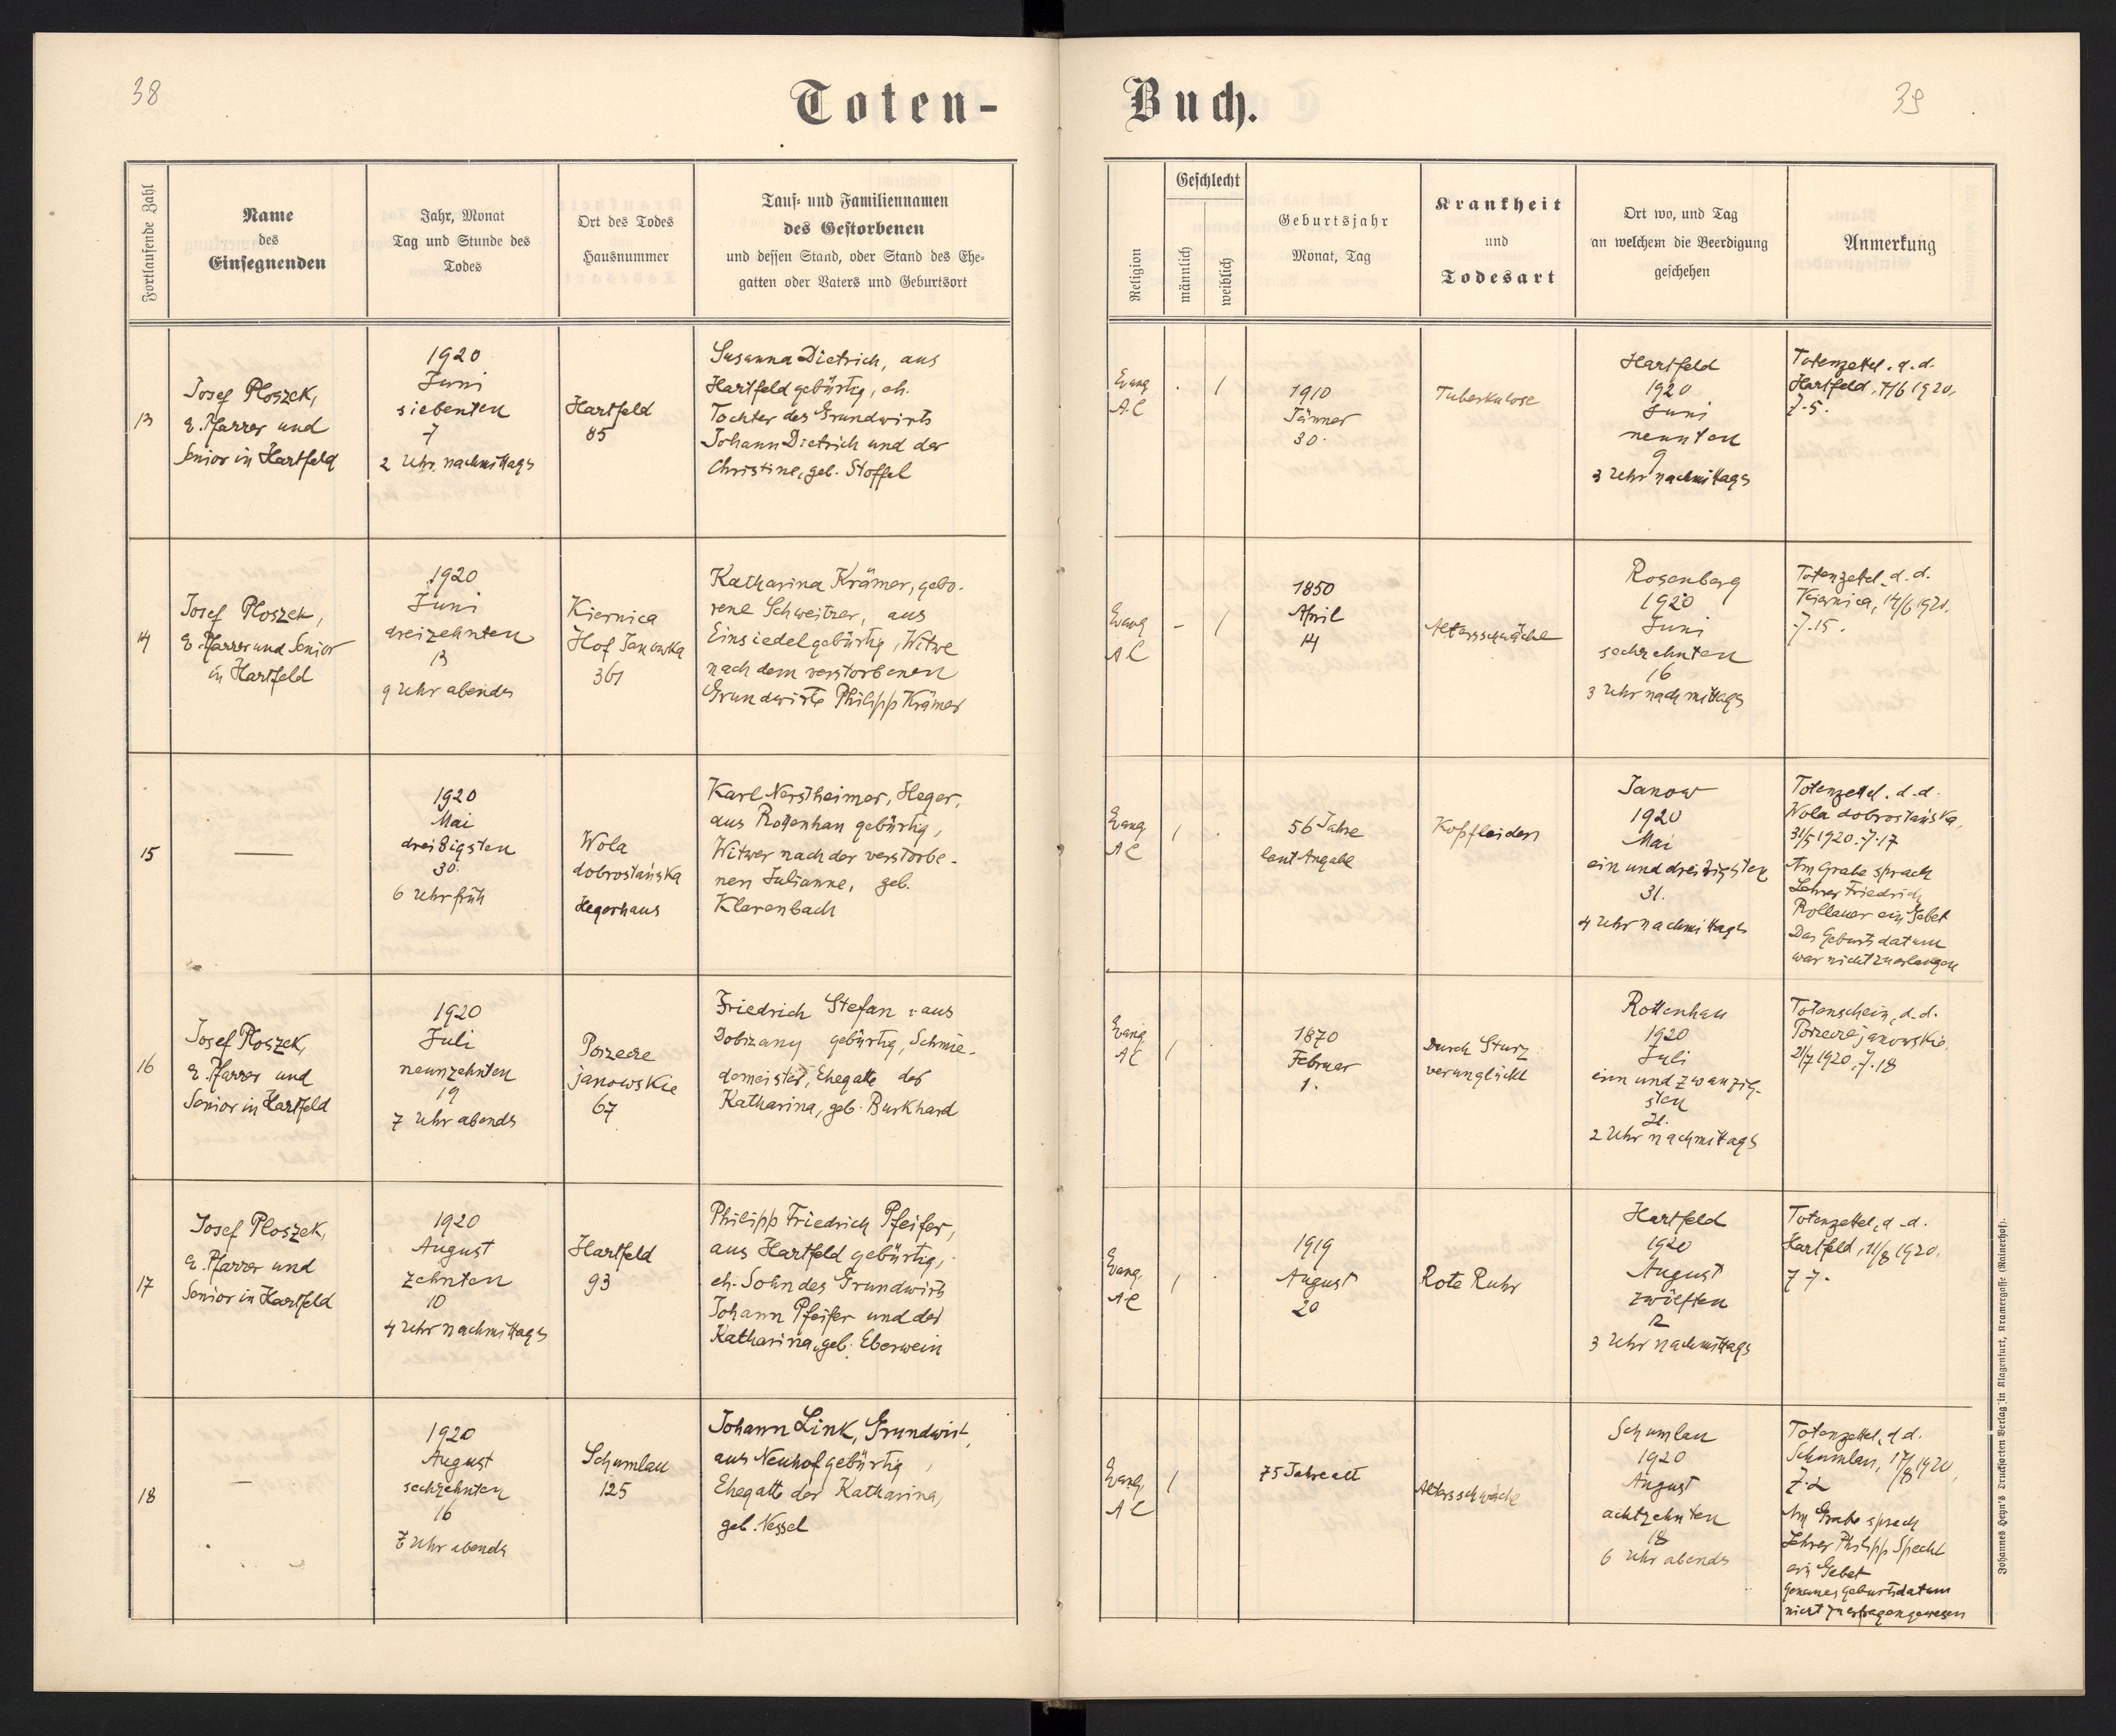 38
Toten-
Fortlaufende Zahl
Name
des
Einsegnenden
Jahr, Monat
Tag und Stunde des
Todes
Ort des Todes
Hausnummer
Tauf- und Familiennamen
des Gestorbenen
und dessen Stand, oder Stand des Ehe-
gatten oder Vaters und Geburtsort
13
Josef Ploszek,
E. Pfarrer und
Senior in Hartfeld
1920
Juni
siebenten
7
2 Uhr nachmittags
Hartfeld
85
Susanna Dietrich, aus
Hartfeld gebürtig, eh.
Tochter des Grundwirts
Johann Dietrich und der
Christine, geb. Stoffel
14
Josef Ploszek,
E. Pfarrer und Senior
in Hartfeld
1920
Juni
dreizehnten
13
9 Uhr abends
Kiernica
Hof Janowka
361
Katharina Krämer, gebo-
rene Schweitzer, aus
Einsiedel gebürtig, Witwe
nach dem verstorbenen
Grundwirte Philipp Krämer
15
—
1920
Mai
dreißigsten
30.
6 Uhr früh
Wola
dobrostańska
Hegerhaus
Karl Nerstheimer, Heger,
aus Rottenhan gebürtig,
Witwer nach der verstorbe-
nen Julianne, geb.
Klarenbach
16
Josef Ploszek,
E. Pfarrer und
Senior in Hartfeld
1920
Juli
neunzehnten
19
7 Uhr abends
Porzecze
janowskie
67
Friedrich Stefan, aus
Dobrzany gebürtig, Schmie-
demeister, Ehegatte der
Katharina, geb. Burkhard
17
Josef Ploszek,
E. Pfarrer und
Senior in Hartfeld
1920
August
zehnten
10
4 Uhr nachmittags
Hartfeld
93
Philipp Friedrich Pfeifer,
aus Hartfeld gebürtig,
eh. Sohn des Grundwirts
Johann Pfeifer und der
Katharina, geb. Eberwein
18
—
1920
August
sechzehnten
16
7 Uhr abends
Schumlau
125
Johann Link, Grundwirt,
aus Neuhof gebürtig,
Ehegatte der Katharina,
geb. Nessel
Buch.
39
Religion
Geschlecht
männlich
weiblich
Geburtsjahr
Monat, Tag
Krankheit
und
Todesart
Ort wo, und Tag
an welchem die Beerdigung
geschehen
Anmerkung
Evang
A.C
. /
1910
Jänner
30.
Tuberkulose
Hartfeld
1920
Juni
neunten
9
3 Uhr nachmittags
Totenzettel. d. d.
Hartfeld, 7/6 1920,
Z. 5.
Evang
A C
– /
1850
April
14
Altersschwäche
Rosenberg
1920
Juni
sechzehnten
16
3 Uhr nachmittags
Totenzettel. d. d.
Kiernica, 14/6 1920.
Z. 15.
Evang
A C
/ .
56 Jahre
laut Angabe
Kopfleiden
Janow
1920
Mai
ein und dreißigsten
31.
4 Uhr nachmittags
Totenzettel. d. d.
Wola dobrostańska,
31/5 1920. Z. 17
Am Grabe sprach
Lehrer Friedrich
Rollauer ein Gebet
Das Geburtsdatum
war nicht zu erlangen
Evang
A C
/
1870
Februar
1.
Durch Sturz
verunglückt
Rottenhan
1920
Juli
ein und zwanzig-
sten
21.
2 Uhr nachmittags
Totenschein, d. d.
Porzecze janowskie,
21/7 1920, Z. 18
Evang.
A C
/ .
1919
August
20
Rote Ruhr
Hartfeld
1920
August
zwölften
12
3 Uhr nachmittags
Totenzettel, d. d.
Hartfeld, 11/8 1920.
Z 7.
Evang.
A C
/
75 Jahre alt
Altersschwäche
Schumlau
1920
August
achtzehnten
18
6 Uhr abends
Totenzettel, d d.
Schumlau, 17/8 1920,
Z. 2
Am Grabe sprach
Lehrer Philipp Specht
ein Gebet
Genaues Geburtsdatum
nicht zu erfragen gewesen
Johannes Heyn's Drucksorten-Verlag in Klagenfurt, Kramergasse (Rainerhof).